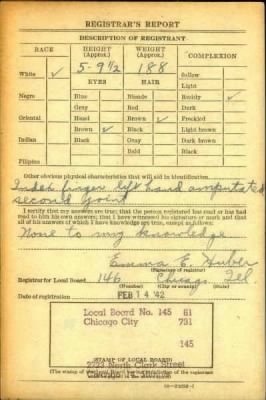 REGISTRAR'S REPORT
DESCRIPTION OF REGISTRANT
RACE HEIGHT (Approx.) WEIGHT (Approx.) COMPLEXION
5-9½ 188 Sallow
White ✓ EYES HAIR Light
Negro Blue Blonde Ruddy ✓
Gray Red Dark
Oriental Hazel Brown ✓ Freckled
Brown ✓ Black Light brown
Indian Black Gray Dark brown
Bald Black
Filipino
Other obvious physical characteristics that will aid in identification
Index finger left hand amputated
second joint
I certify that my answers are true; that the person registered has read or has had
read to him his own answers; that I have witnessed his signature or mark and that
all of his answers of which I have knowledge are true, except as follows:
None to my knowledge
Emma E. Huber
(Signature of registrar)
Registrar for Local Board 146 Chicago Ill
(Number) (City or county) (State)
Date of registration FEB 14 '42
Local Board No. 145 61
Chicago City 731
145
2723 North Clark Street
(STAMP OF LOCAL BOARD)